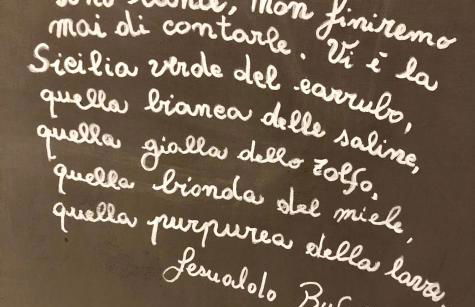 sono tante, non finiremo
mai di contarle. Vi è la
Sicilia verde del carrubo,
quella bianca delle saline,
quella gialla dello zolfo,
quella bionda del miele,
quella purpurea della lava.
Gesualdo